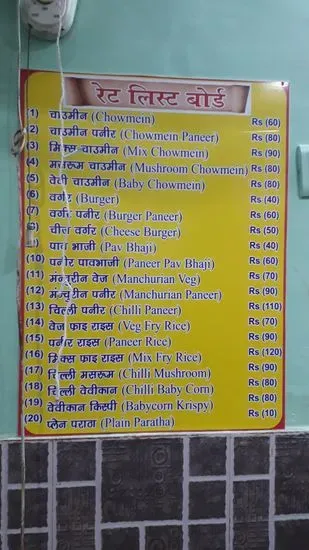 रेट लिस्ट बोर्ड
(1) चाउमीन (Chowmein) Rs (60)
(2) चाउमीन पनीर (Chowmein Paneer) Rs (80)
(3) मिक्स चाउमीन (Mix Chowmein) Rs (90)
(4) मसरूम चाउमीन (Mushroom Chowmein) Rs (80)
(5) वेवी चाउमीन (Baby Chowmein) Rs (80)
(6) वर्गर (Burger) Rs (40)
(7) वर्गर पनीर (Burger Paneer) Rs (60)
(8) चीज वर्गर (Cheese Burger) Rs (50)
(9) पाव भाजी (Pav Bhaji) Rs (40)
(10) पनीर पावभाजी (Paneer Pav Bhaji) Rs (60)
(11) मंचूरीन वेज (Manchurian Veg) Rs (70)
(12) मंचूरीन पनीर (Manchurian Paneer) Rs (90)
(13) चिल्ली पनीर (Chilli Paneer) Rs (110)
(14) वेज फ्राइ राइस (Veg Fry Rice) Rs (70)
(15) पनीर राइस (Paneer Rice) Rs (90)
(16) मिक्स फ्राइ राइस (Mix Fry Rice) Rs (120)
(17) चिल्ली मसरूम (Chilli Mushroom) Rs (90)
(18) चिल्ली वेवीकान (Chilli Baby Corn) Rs (80)
(19) वेवीकान क्रिस्पी (Babycorn Krispy) Rs (80)
(20) प्लेन पराठा (Plain Paratha) Rs (10)